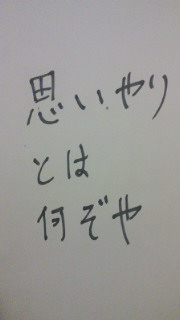 思いやり
とは
何ぞや